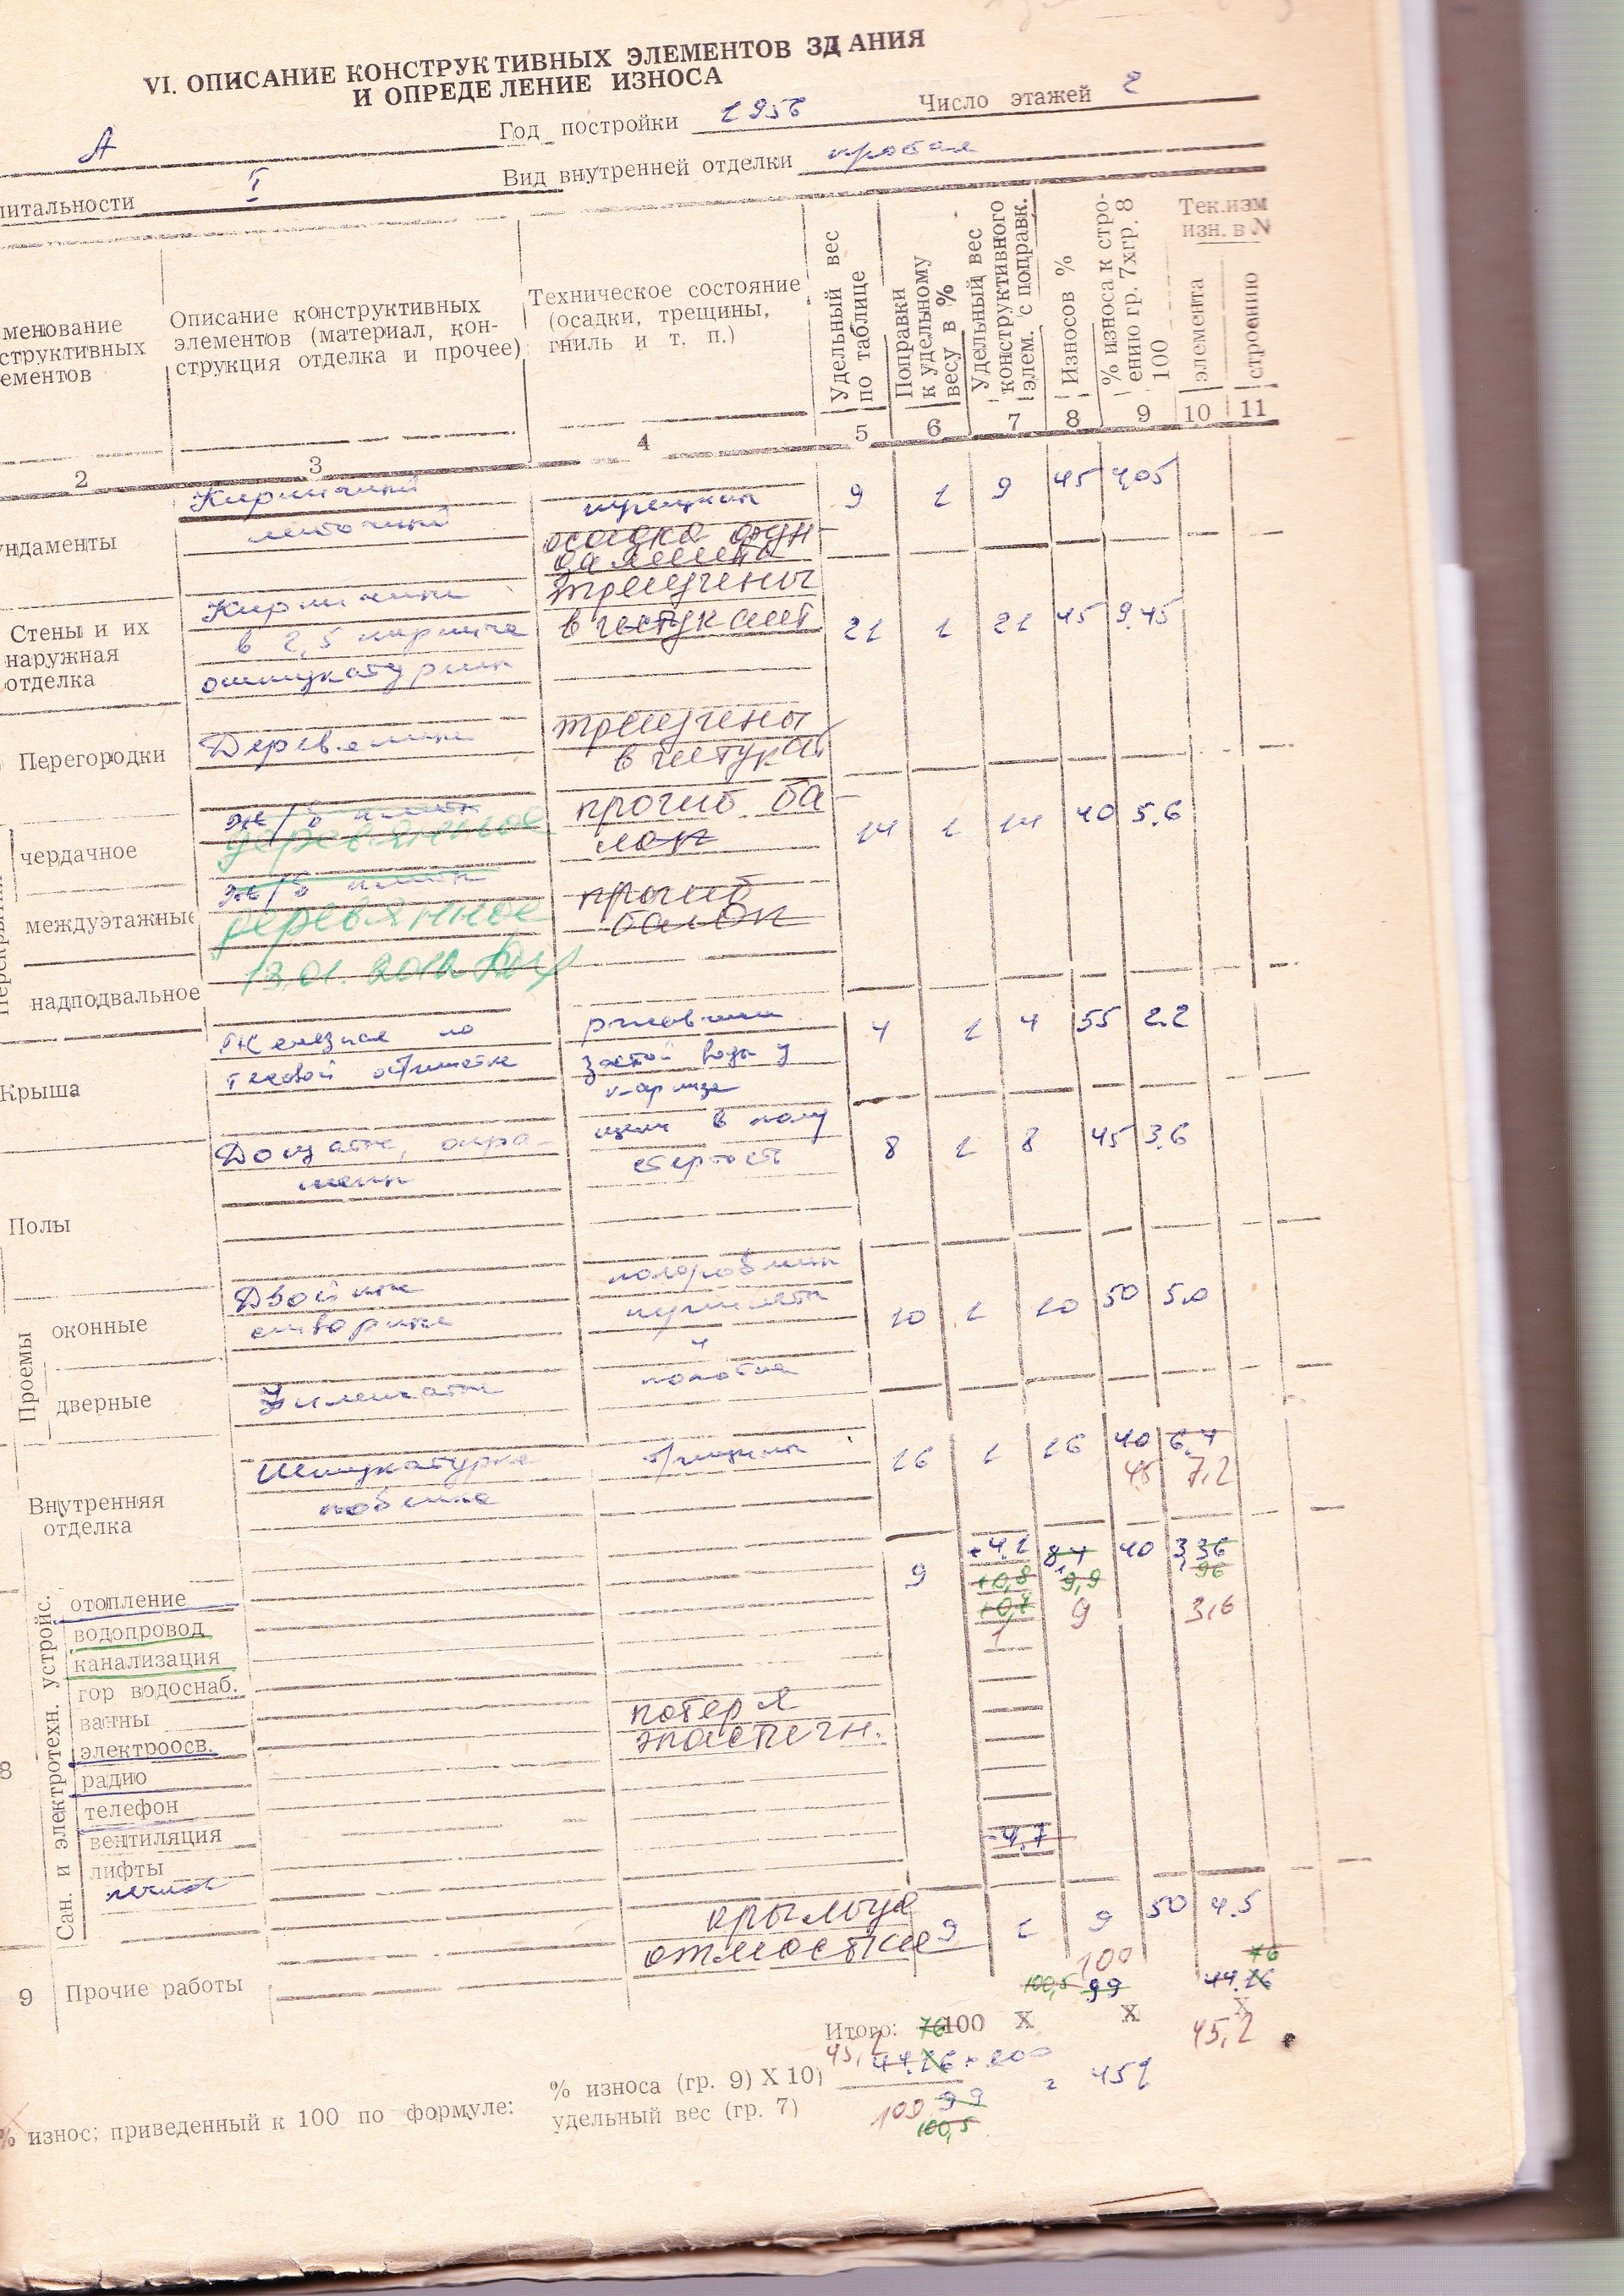 VI. ОПИСАНИЕ КОНСТРУКТИВНЫХ ЭЛЕМЕНТОВ ЗДАНИЯ
И ОПРЕДЕЛЕНИЕ ИЗНОСА
А Год постройки 1956 Число этажей 2
питальности I Вид внутренней отделки простая
менование
структивных
ементов
Описание конструктивных
элементов (материал, кон-
струкция отделка и прочее)
Техническое состояние
(осадки, трещины,
гниль и т. п.)
Удельный вес
по таблице
Поправки
к удельному
весу в %
Удельный вес
конструктивного
элем. с поправк.
Износов %
% износа к стро-
ению гр. 7хгр. 8
100
Тек.изм
изн. в №
элемента
строению
2 3 4 5 6 7 8 9 10 11
ундаменты
Кирпичный
ленточный
трещины
осадка фун-
дамента
9 1 9 45 4,05
Стены и их
наружная
отделка
Кирпичные
в 2,5 кирпича
оштукатурены
трещины
в штукат
21 1 21 45 9,45
Перегородки
Деревянные
трещины
в штукат
чердачное
ж/б плиты
деревянное
прогиб ба-
лок
14 1 14 40 5,6
междуэтажные
ж/б плиты
деревянное
прогиб
балок
надподвальное
13.01.2012
Крыша
Железная по
тесовой обрешетке
ржавчина
застой воды у
карниза
4 1 4 55 2.2
Полы
Дощатые, окра-
шены
щели в полу
стертость
8 1 8 45 3,6
Проемы
оконные
Двойные
створные
покороблены
переплеты
и
полотна
10 1 10 50 5.0
дверные
Филенчатые
Внутренняя
отделка
Штукатурка
побелка
трещины
16 1 16 40 6,4
45 7,2
Сан. и электротехн. устройс.
9 8,4 40 3,36
+0,8 9,9 96
9 3,6
1
отопление
водопровод
канализация
гор водоснаб.
ванны
электроосв.
радио
телефон
вентиляция
лифты
потеря
эластичн.
8
-4,7
9 Прочие работы
крыльца
отмостки
9 1 9 50 4.5
100
76
100,5 99 44.26
Итого: 100 X X X
45,2
45,2
% износ; приведенный к 100 по формуле:
% износа (гр. 9) X 10)
удельный вес (гр. 7)
100 99
100,5